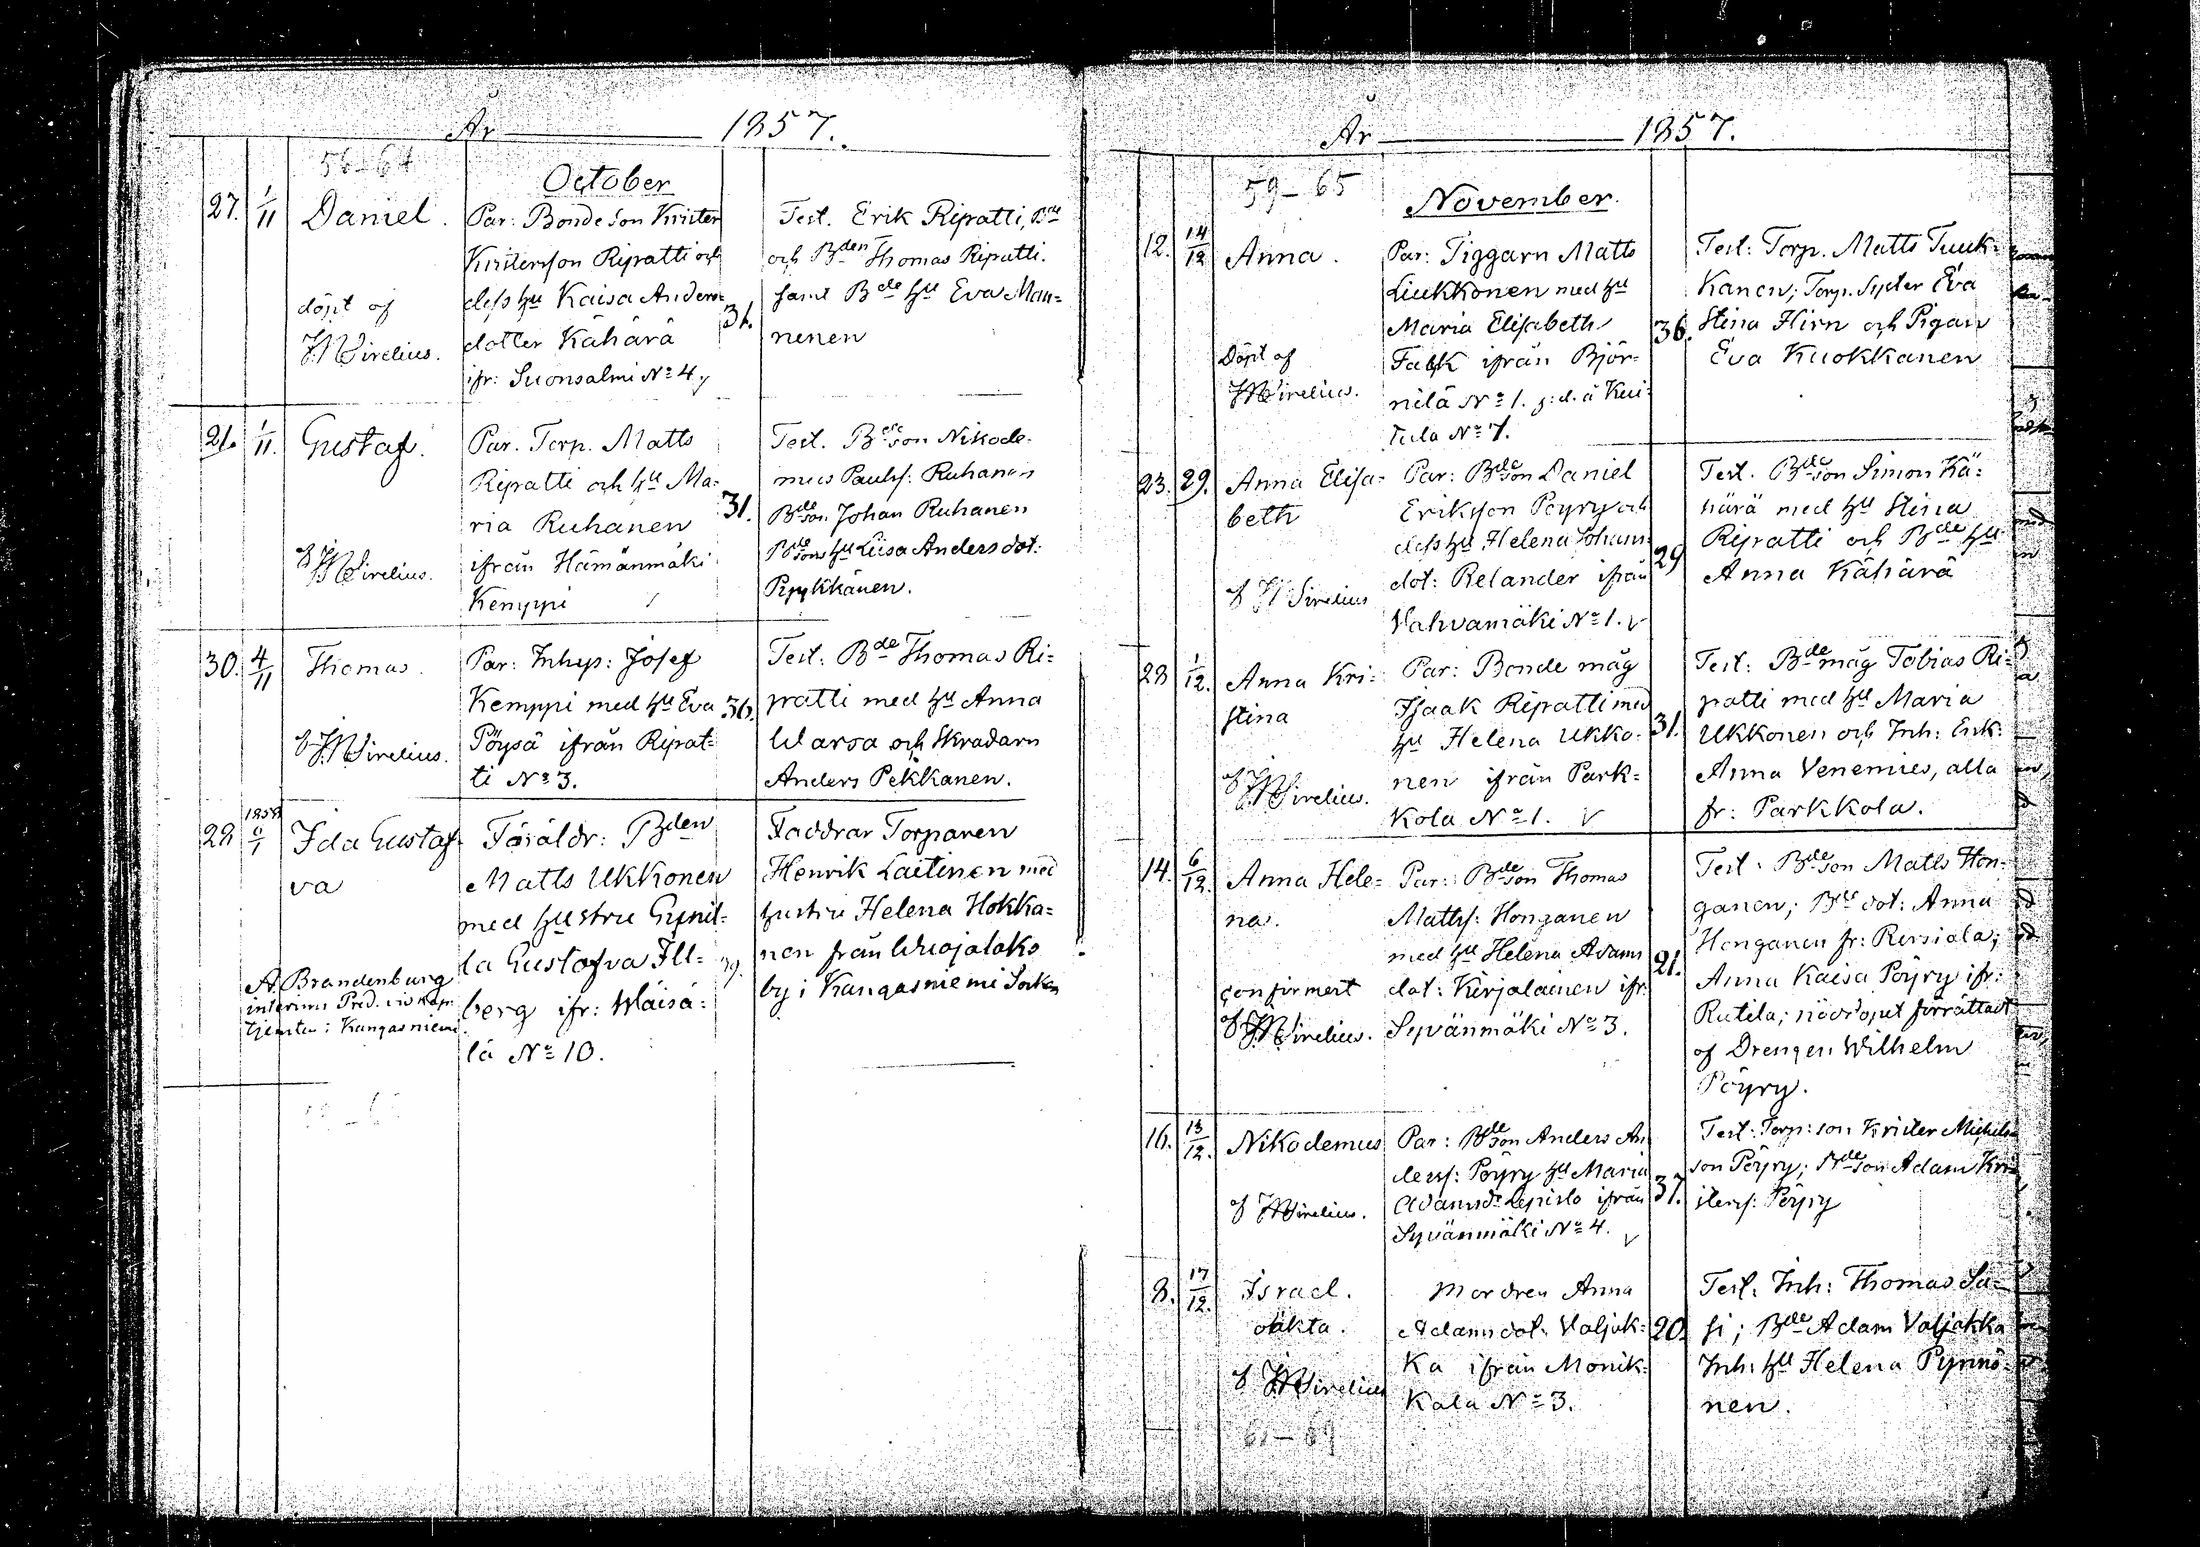 År 1857.
56-64
October
27. 1/11 Daniel.
döpt af
JWSirelius.
Par: Bonde Son Krister
Kristersson Ripatti och
dess hu Kaisa Anders=
dotter Kähärä
ifr: Suonsalmi No 4.
31.
Test. Erik Ripatti, Bde
och Bden Thomas Ripatti.
samt Bde hu Eva Man=
nenen
21. 1/11. Gustaf.
af JWSirelius.
Par. Torp. Matts
Ripatti och hu Ma=
ria Ruhanen
ifrån Hämänmäki
Kemppi
31.
Test. Bdeson Nikode-
mus Paulss: Ruhanen
Bdeson Johan Ruhanen
Bdesons hu Liisa Andersdot:
Pyykkänen.
30. 4/11 Thomas.
af JWSirelius.
Par: Inhys: Josef
Kemppi med hu Eva
Pöysä ifrån Ripat=
ti No 3.
36.
Test: Bde Thomas Ri=
patti med hu Anna
Warsa och Skradarn
Anders Pekkanen.
28 1858 6/1 Ida Gustaf
va
A. Brandenburg
interims Pred. vid Kap.
tjensten i Kangasniemi.
Föräldr: Bden
Matts Ukkonen
med hustru Gunil=
la Gustafva Ill=
berg ifr: Wäisä=
lä No 10.
Faddrar Torparen
Henrik Laitinen med
hustru Helena Hokka=
nen från Wuojalaks
by i Kangasniemi Socken
År 1857.
59-65
November.
12. 14/12 Anna.
Döpt af
JWSirelius.
Par: Tiggarn Matts
Liukkonen med hu
Maria Elisabeth
Falck ifrån Björ=
nilä No 1. f.d. å Kui=
tula No 7.
36.
Test: Torp. Matts Tuuk=
kanen; Torp. Syster Eva
Stina Hirn och Pigan
Eva Kuokkanen
23. 29. Anna Elisa=
beth
af JWSirelius
Par: Bdeson Daniel
Eriksson Pöyry och
dess hu Helena Johans
dot: Relander ifrån
Vahvamäki No 1.
29
Test. Bdeson Simon Kä=
härä med hu Stina
Ripatti och Bde hu
Anna Kähärä
28 1/12. Anna Kri=
stina
af JWSirelius.
Par: Bonde måg
Isaak Ripatti med
hu Helena Ukko-
nen ifrån Park=
kola No 1.
31.
Test: Bdemåg Tobias Ri=
patti med hu Maria
Ukkonen och Inh: Enk:
Anna Venemies, alla
fr: Parkkola.
14. 6/12. Anna Hele=
na.
confirmert
af JWSirelius.
Par: Bdeson Thomas
Mathss: Honganen
med hu Helena Adams
dot: Kirjalainen ifr.
Syvänmäki No 3.
21.
Test. Bdeson Matts Hon=
ganen; Bde dot: Anna
Honganen fr:
Anna Kaisa Pöyry ifr:
Rutila; nöddopet förrättadt
af Drengen Wilhelm
Pöyry.
16. 13/12. Nikodemus
af JWSirelius.
Par: Bdeson Anders An
derss: Pöyry hu Maria
Adamsdr Lepistö ifrån
Syvänmäki No 4.
37.
Test: Torp: son Krister Michels
son Pöyry; Bdeson Adam Kri
sterss: Pöyry
8. 17/12. Israel.
oäkta.
af JWSirelius
Modren Anna
Adamsdot: Valjak=
ka ifrån Monik=
kala No 3.
20.
Test. Inh: Thomas Su=
si; Bde Adam Valjakka
Inh: hu Helena Pynnö=
nen.